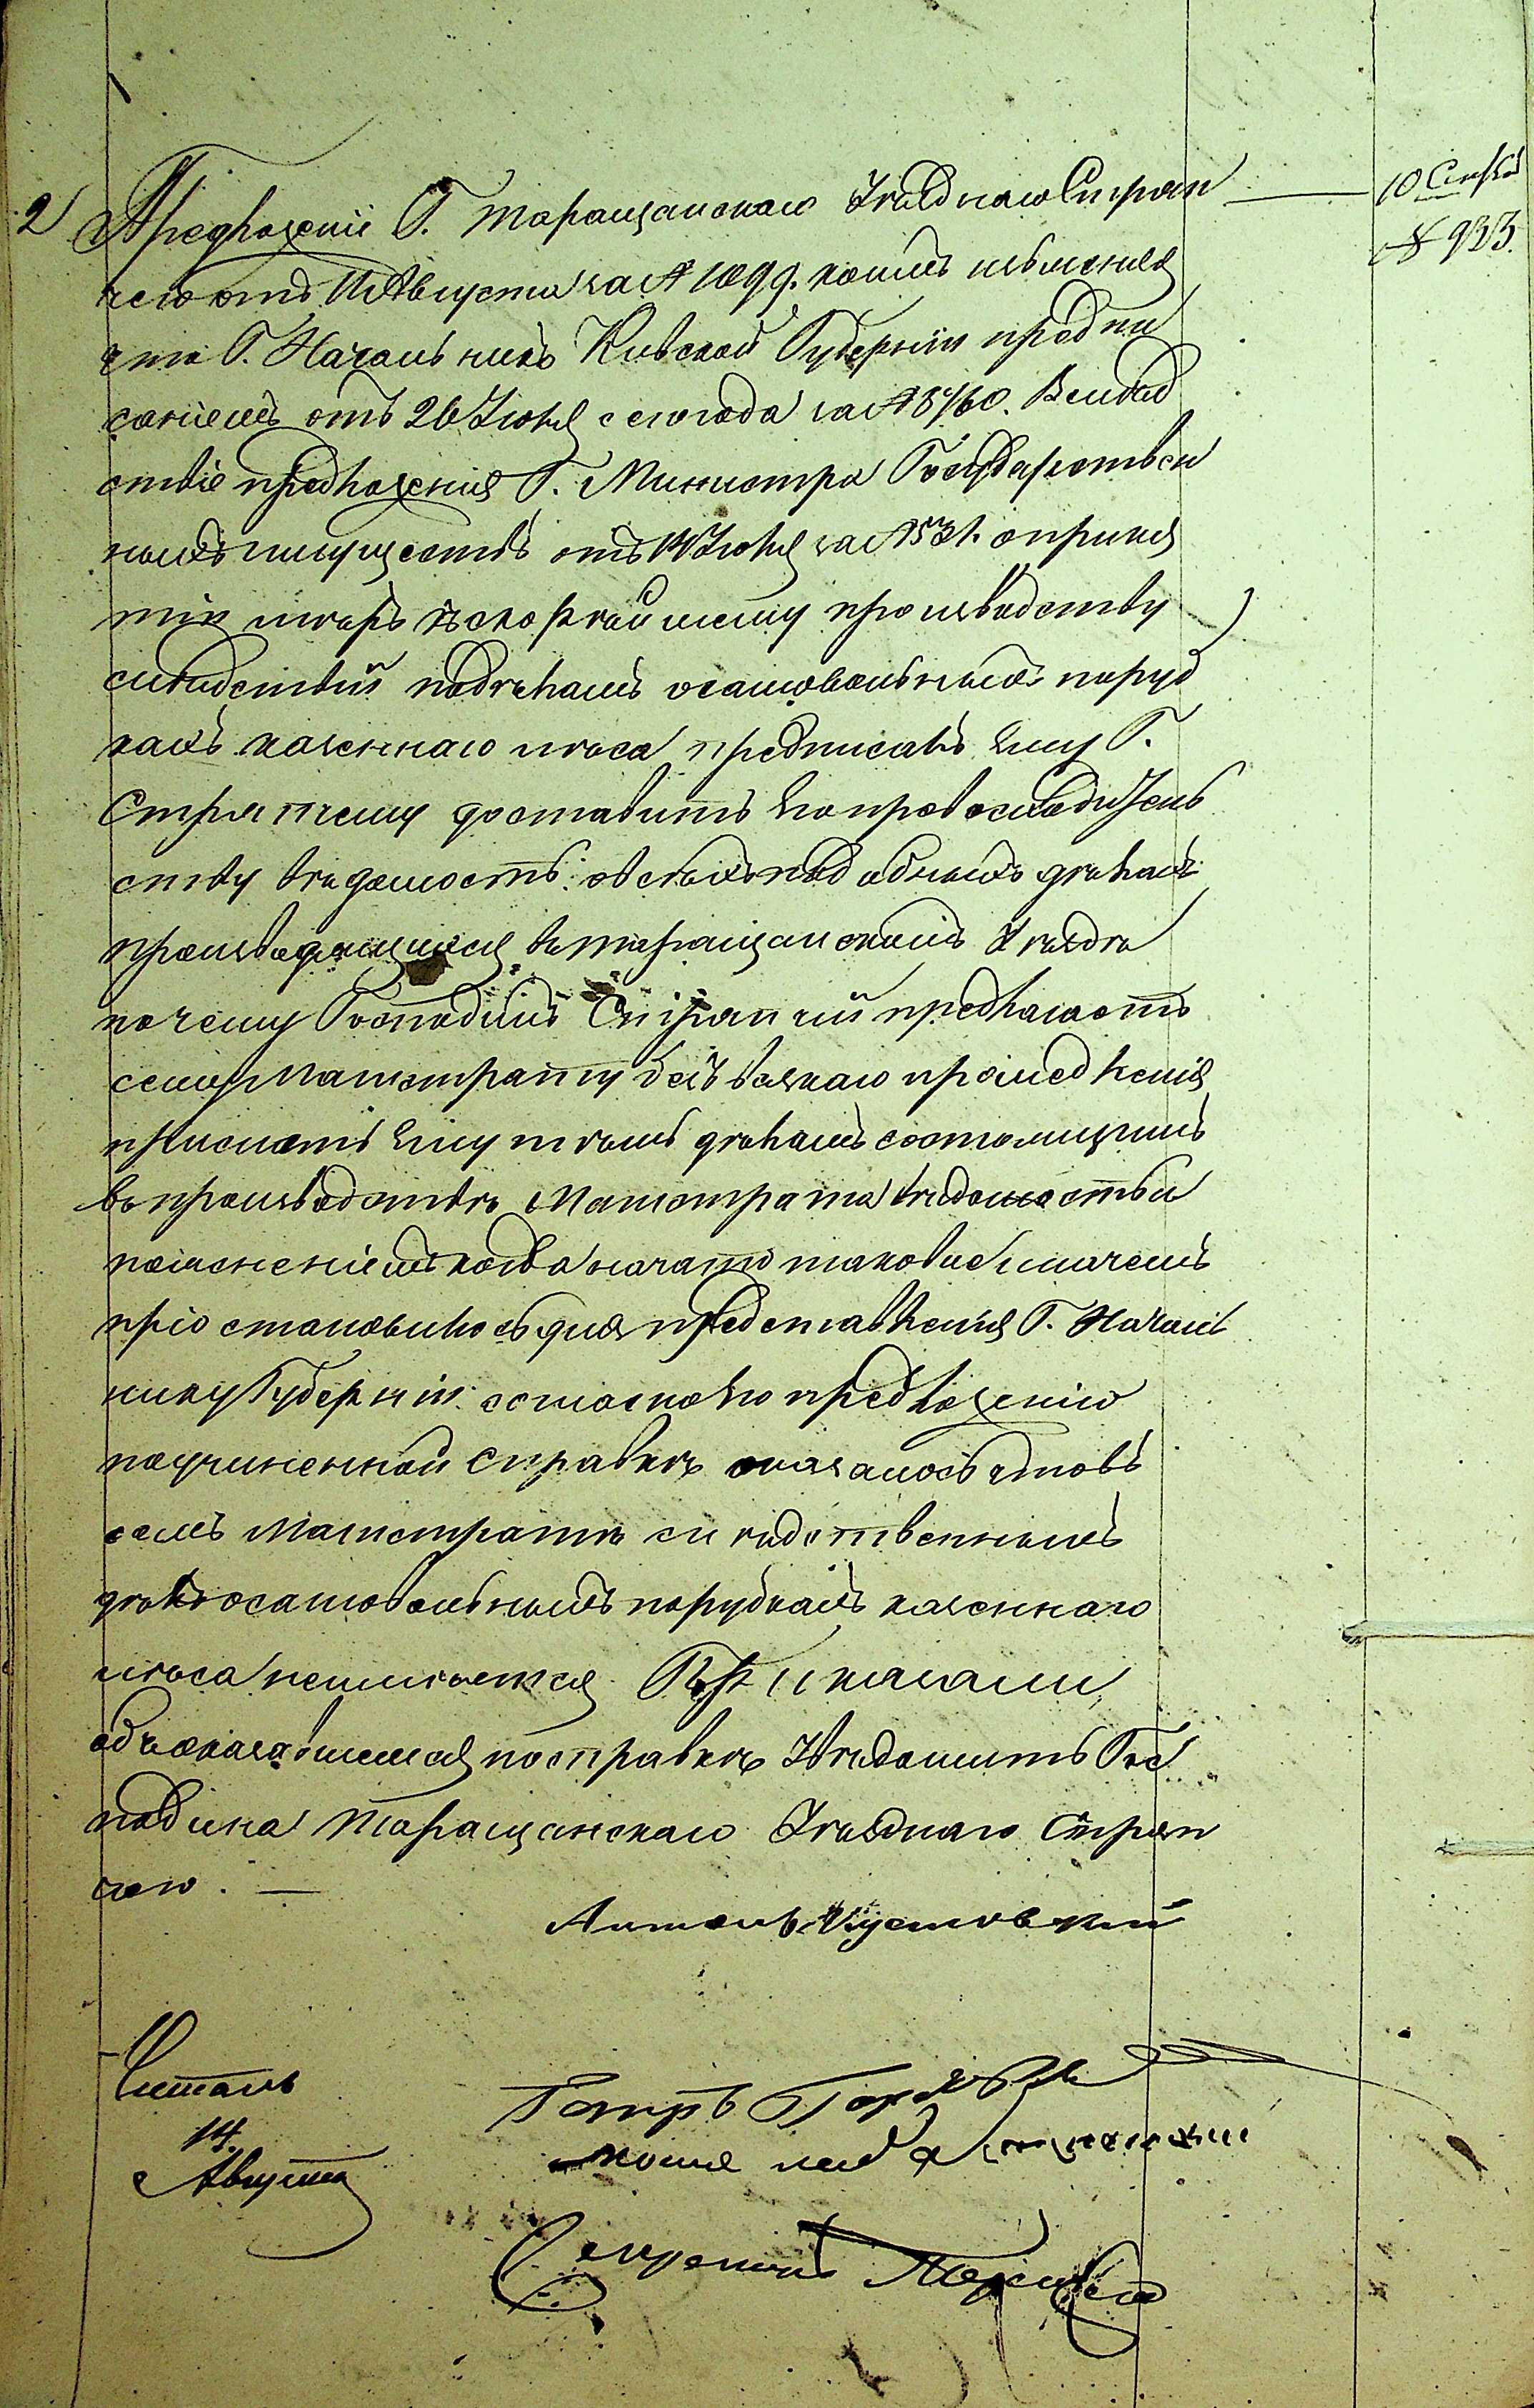 10 Сентября
№ 933.
2 Предложеніе Г. Таращанскаго Уѣзднаго Стряп
чего отъ 11 Августа за № 1099. коимъ изъясняя
что Г. Начальникъ Кіевской Губерніи предпи
саніемъ отъ 26 Іюля сего года за № 8460. Вслѣд
ствіе предложенія Г. Министра Государствен
ныхъ имуществъ отъ 14 Іюля за № 1531. о приня
тіи мѣръ къ скорѣйшему производству
слѣдствій по дѣламъ о самовольныхъ поруб
кахъ казеннаго лѣса предписалъ ему Г.
Стряпчему доставить Его превосходитель
ству вѣдомость: о всѣхъ подобныхъ дѣлахъ
производящихся въ Таращанскомъ Уѣздѣ
почему Господинъ Стряпчій предлагаетъ
сему Магистрату безъ всякаго промедленія
прислать ему о тѣмъ дѣламъ состоящимъ
въ производствѣ Магистрата вѣдомость съ
поясненіемъ когда начаты таковые и зачемъ
пріостановились для представленія Г. Началь
нику Губерніи: а какъ по предложенію
по учиненной справкѣ оказалось что въ
семъ Магистратѣ слѣдственныхъ
дѣлъ о самовольныхъ порубкахъ казеннаго
лѣса неимѣется. Приказали
объ оказавшемся по справкѣ Увѣдомить Гос
подина Таращанскаго Уѣзднаго Стряп
чего. —
Антонъ
Читалъ
14
Августа
Петръ
Секретарь